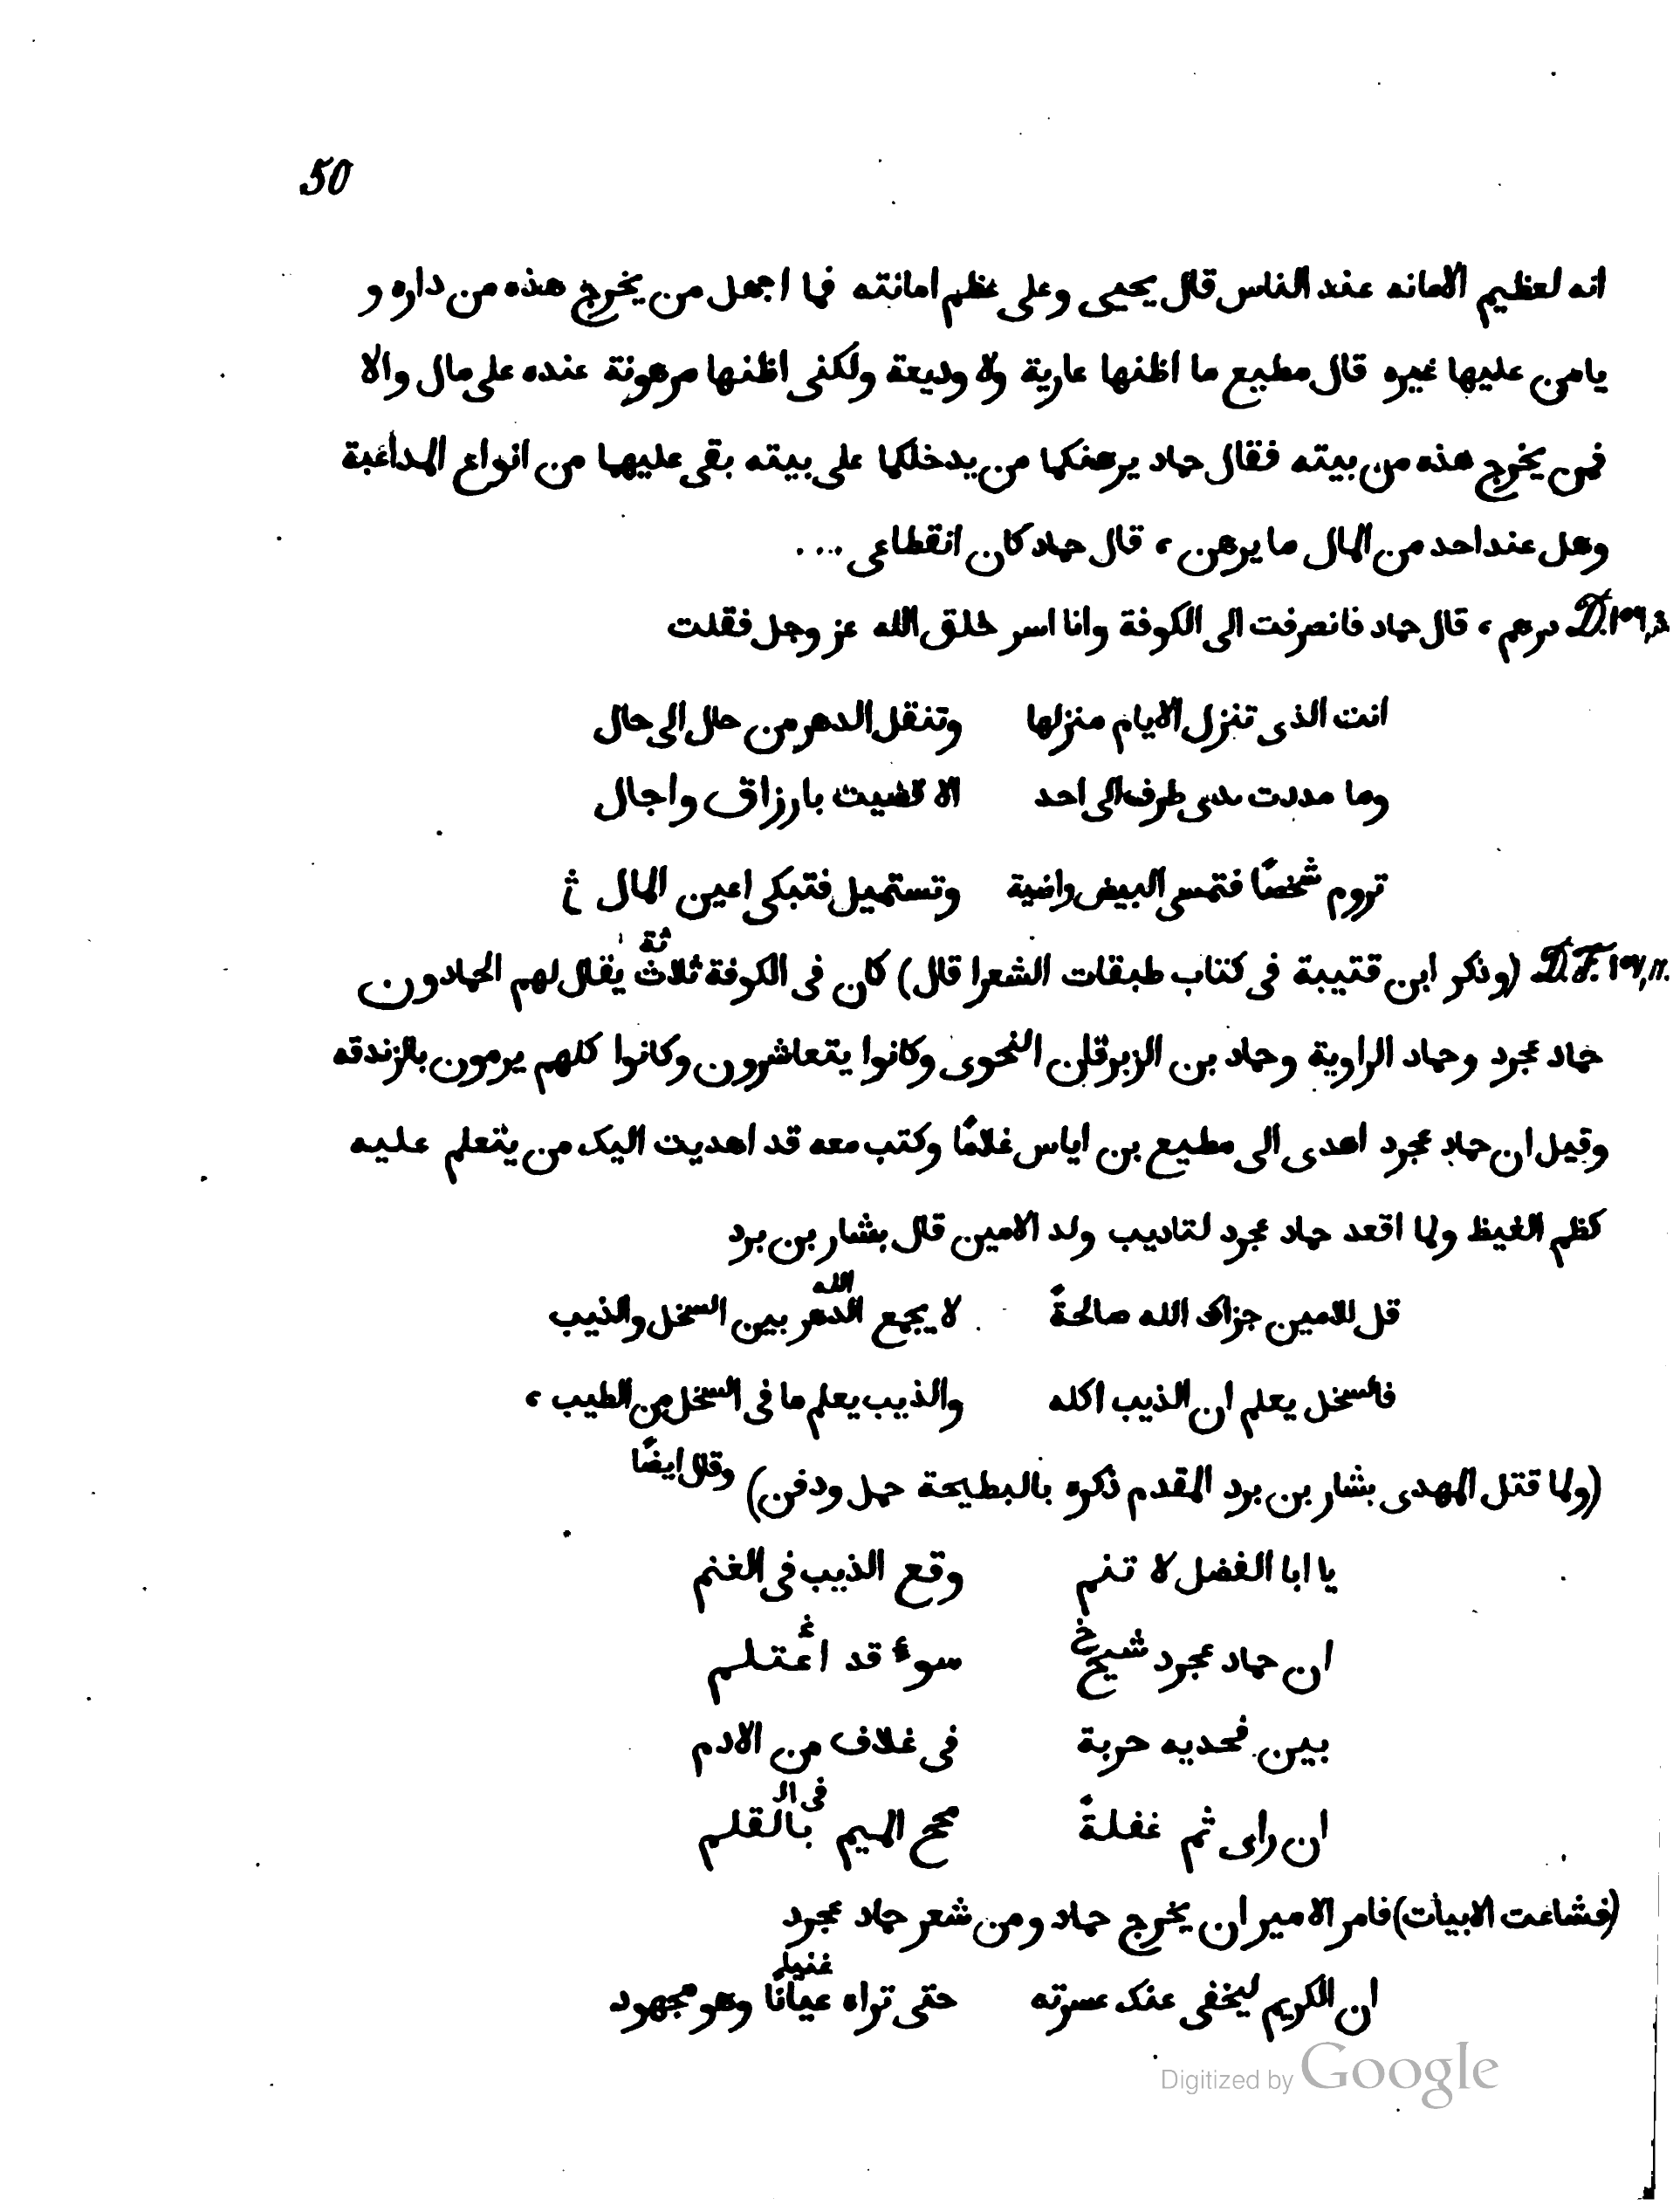 50
انه لعظيم الامانه عند الناس قال يحيى وعلى عظم امانته فما اجهل من يخرج هذه من داره و
يامن عليها غيره قال مطيع ما اظنها عارية ولا وديعة ولكنى اظنها مرهونة عنده على مال والا
فمن يخرج هذه من بيته فقال حماد يرهنكما من يدخلكما على بيته بقى عليهما من انواع المداعبة
وهل عند احد من المال ما يرهن، قال حماد كان انقطاعى ...
D.١٥٦,3 درهم، قال حماد فانصرفت الى الكوفة وانا اسر خلق الله عز وجل فقلت
انت الذى تنزل الايام منزلها وتنقل الدهر من حال الى حال
وما مددت مدى طرف الى احد الا قضيت بارزاق واجال
تروم شخصًا فتمسى البيض راضية وتستميل فتبكى اعين المال
D.F. ١٥٧,11. (وذكر ابن قتيبة فى كتاب طبقات الشعرا قال) كان فى الكوفة ثلاث ثة يقال لهم الحمادون
حماد عجرد وحماد الراوية وحماد بن الزبرقان النحوى وكانوا يتعاشرون وكانوا كلهم يرمون بالزندقه
وقيل ان حماد عجرد اهدى الى مطيع بن اياس غلامًا وكتب معه قد اهديت اليك من يتعلم عليه
كظم الغيظ ولما اقعد حماد عجرد لتاديب ولد الامين قال بشار بن برد
قل للامين جزاك الله صالحةً لا يجمع الدهر الله بين السخل والذيب
فالسخل يعلم ان الذيب اكله والذيب يعلم ما فى السخل من الطيب،
(ولما قتل المهدى بشار بن برد المقدم ذكره بالبطيحة حمل ودفن) وقال ايضًا
يا ابا الفضل لا تنم وقع الذيب فى الغنم
ان حماد عجرد شيخ سوء قد اغتلم
بين فحديه حربة فى غلاف من الادم
ان راى ثم غفلةً مجمج الميم بالقلم فى ال
(فشاعت الابيات) فامر الامير ان يخرج حماد ومن شعر حماد عجرد
ان الكريم ليخفى عنك عسرته حتى تراه عيانًا غنيا وهو مجهود
Digitized by Google